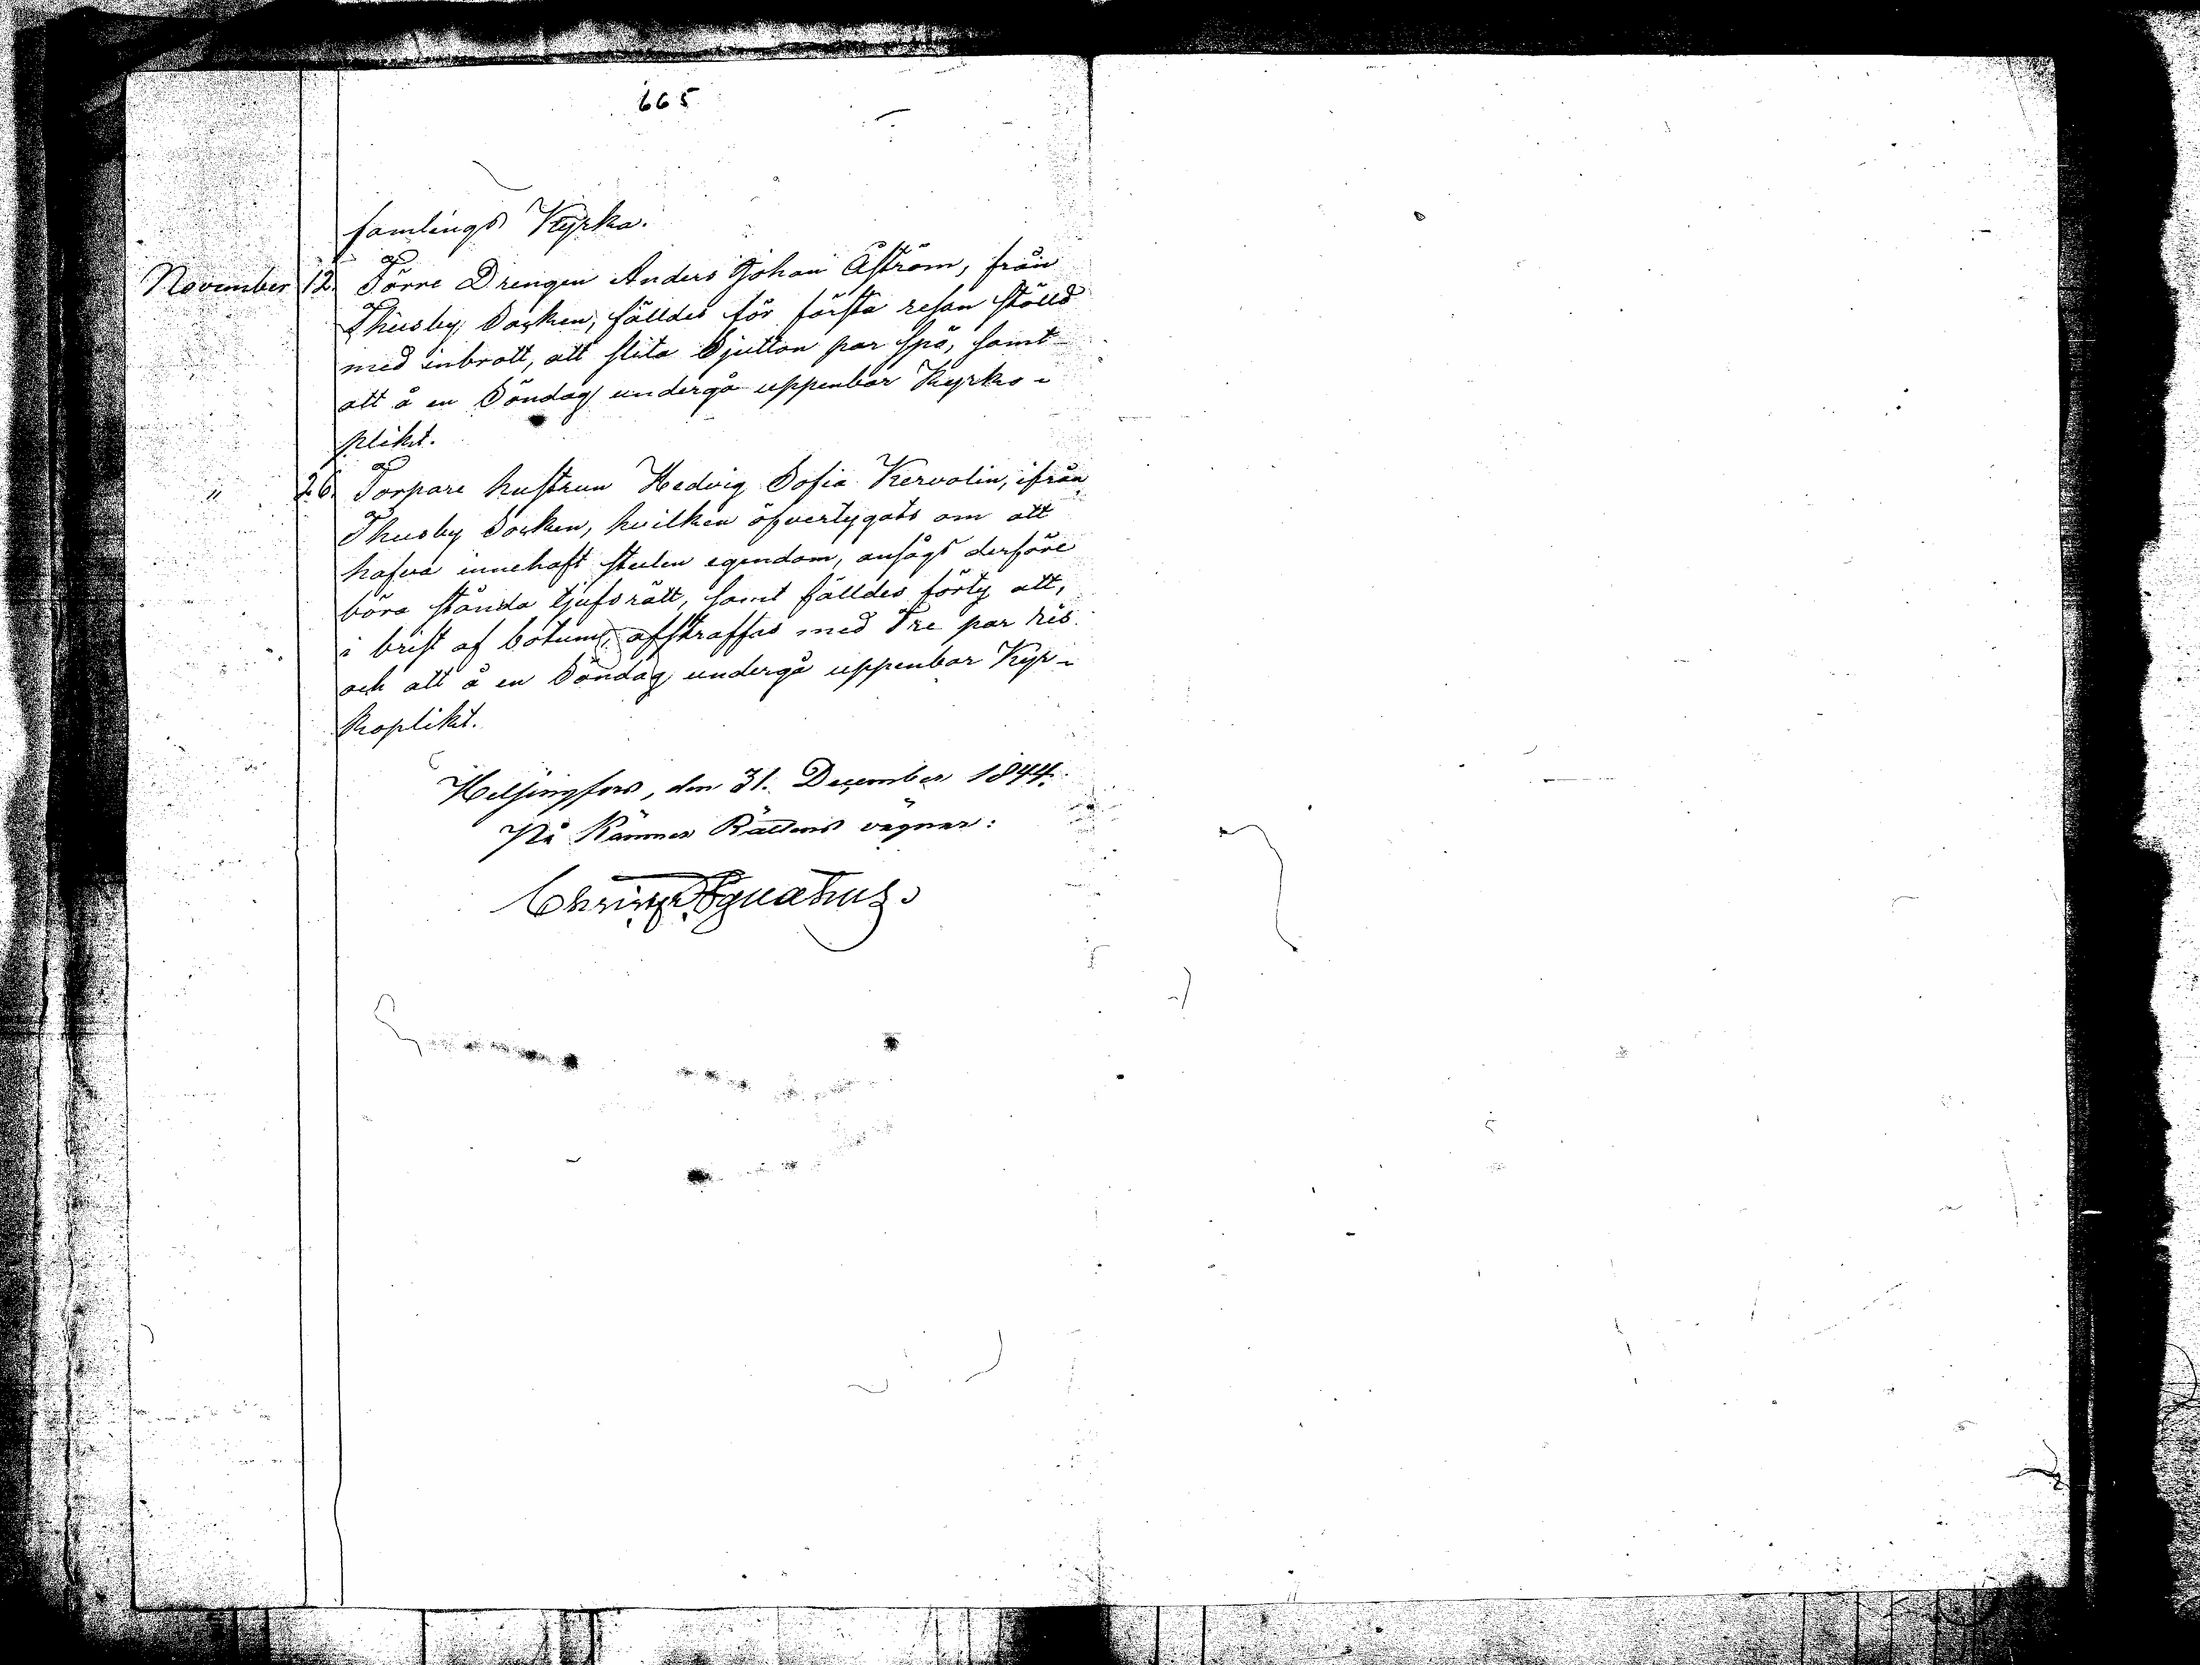 665
samlings Kyrka.
November 12. Förre Drengen Anders Johan Åström, från
Thusby Socken, fälldes för första resan stöld
med inbrott, att slita Sjutton par spö, samt
att å en Söndag undergå uppenbar Kyrko-
plikt.
" 26. Torpare hustrun Hedvig Sofia Kervolin, ifrån
Thusby Socken, hvilken öfvertygats om att
hafva innehaft stulen egendom, ansågs derföre
böra stånda tjufsrätt, samt fälldes förty att,
i brist af böterne, afstraffas med Tre par ris
och att å en Söndag undergå uppenbar Kyr-
koplikt.
Helsingfors, den 31. December 1844.
På Kämners Rättens vägnar:
Christ. Ignatius.